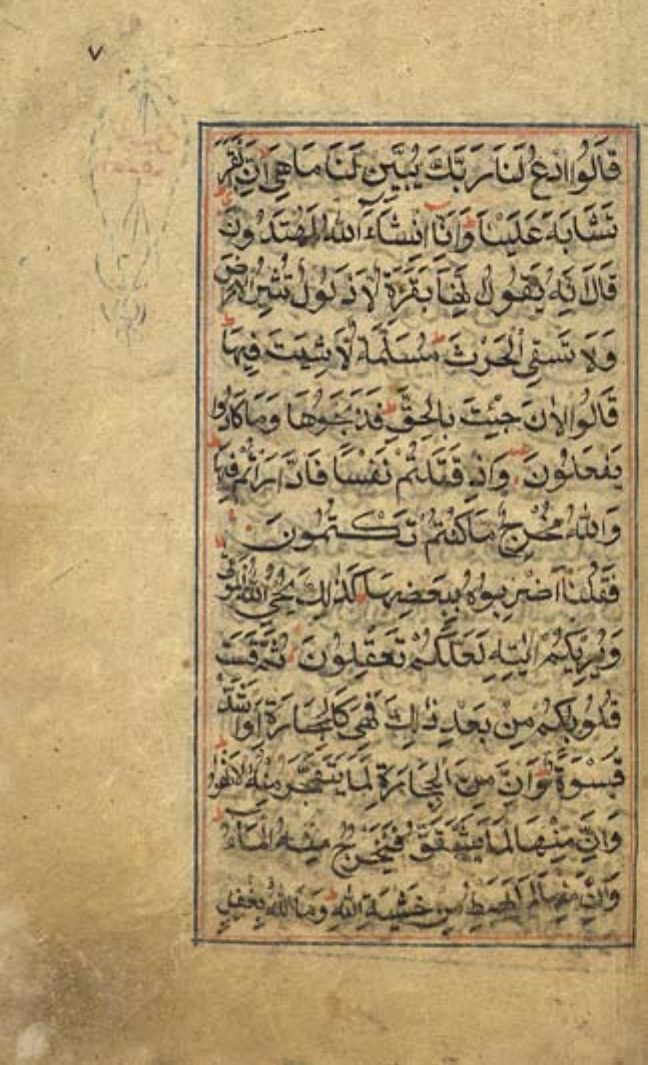 ٧
قَالُوا ادْعُ لَنَا رَبَّكَ يُبَيِّن لَّنَا مَا هِيَ إِنَّ الْبَقَرَ
تَشَابَهَ عَلَيْنَا وَإِنَّا إِنْشَاءَ اللهُ لَمُهْتَدُونَ
قَالَ إِنَّهُ يَقُولُ إِنَّهَا بَقَرَةٌ لَا ذَلُولٌ تُثِيرُ الْأَرْضَ
وَلَا تَسْقِي الْحَرْثَ مُسَلَّمَةٌ لَا شِيَةَ فِيهَا
قَالُوا الْآنَ جِئْتَ بِالْحَقِّ فَذَبَحُوهَا وَمَا كَادُوا
يَفْعَلُونَ وَإِذْ قَتَلْتُمْ نَفْسًا فَادَّارَأْتُمْ فِيهَا
وَاللهُ مُخْرِجٌ مَا كُنْتُمْ تَكْتُمُونَ
فَقُلْنَا اضْرِبُوهُ بِبَعْضِهَا كَذَٰلِكَ يُحْيِ اللهُ الْمَوْتَى
وَيُرِيكُمْ آيَٰتِهِ لَعَلَّكُمْ تَعْقِلُونَ ثُمَّ قَسَتْ
قُلُوبُكُمْ مِنْ بَعْدِ ذَٰلِكَ فَهِيَ كَالْحِجَارَةِ أَوْ أَشَدُّ
قَسْوَةً وَإِنَّ مِنَ الْحِجَارَةِ لَمَا يَتَفَجَّرُ مِنْهُ الْأَنْهَارُ
وَإِنَّ مِنْهَا لَمَا يَشَّقَّقُ فَيَخْرُجُ مِنْهُ الْمَاءُ
وَإِنَّ مِنْهَا لَمَا يَهْبِطُ مِنْ خَشْيَةِ اللهِ وَمَا اللهُ بِغَٰفِلٍ